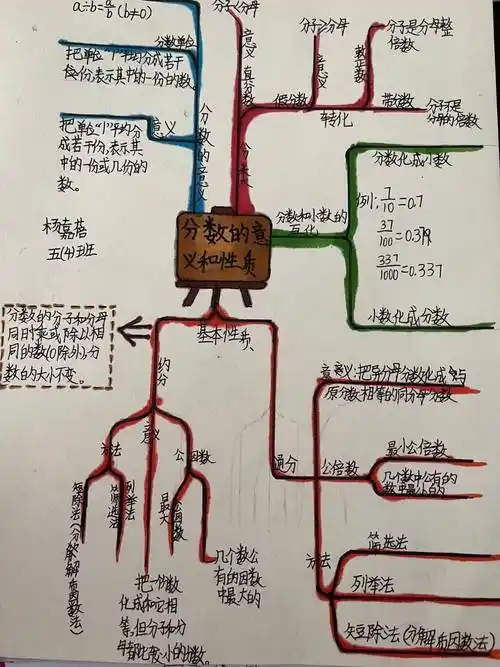 a÷b=a/b(b≠0)
分数单位
把单位“1”平均分成若干
份,表示其中的一份的数
意义
把单位“1”平均分
成若干份,表示其
中的一份或几份的
数。
分数的意义
杨嘉蓓
五(4)班
分子<分母
意义
真分数
分类
分子≥分母
意义
假分数
分子是分母整
倍数
整数
带分数
转化
分子不是
分母的倍数
分数的意
义和性质
分数和小数的
互化
分数化成小数
例:7/10=0.7
37/100=0.37
337/1000=0.337
小数化成分数
基本性质
分数的分子和分母
同时乘或除以相
同的数(0除外),分
数的大小不变。
约分
方法
短除法(分解质因数法)
筛选法
列举法
意义
把一个分数
化成和它相
等,但分子和分
母都比较小的分数。
公因数
最大
公因数
几个数公
有的因数
中最大的
通分
意义:把异分母分数化成与
原分数相等的同分母分数
公倍数
最小公倍数
几个数中公有的
数中最小的
方法
筛选法
列举法
短除法(分解质因数法)